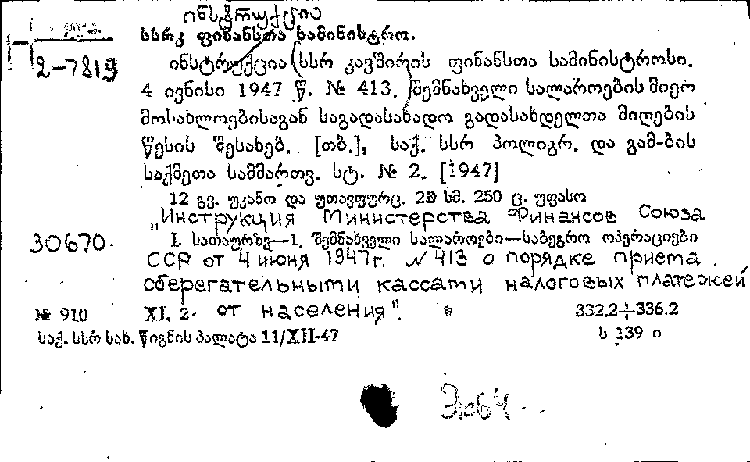 ინსტრუქცია
სსრკ ფინანსთა სამინისტრო.
2-7819
ინსტრუქცია სსრ კავშირის ფინანსთა სამინისტროსი.
4 ივნისი 1947 წ. № 413. შემნახველი სალაროების მიერ
მოსახლეობისაგან საგადასახადო გადასახდელთა მიღების
წესის შესახებ. [თბ.], საქ. სსრ პოლიგრ. და გამ-ბის
საქმეთა სამმართვ. სტ. № 2. [1947]
12 გვ. უკანო და უთავფურც. 20 სმ. 250 ც. უფასო
„Инструкция Министерства Финансов Союза
30670
I. სათაურზე—1. შემნახველი სალაროები—საბეგრო ოპერაციები
ССР от 4 июня 1947г. №413 о порядке приема
сберегательными кассами налоговых платежей
№ 910 XI. 2. от населения". 332.2+336.2
საქ. სსრ სახ. წიგნის პალატა 11/XII-47 ს 339 ი